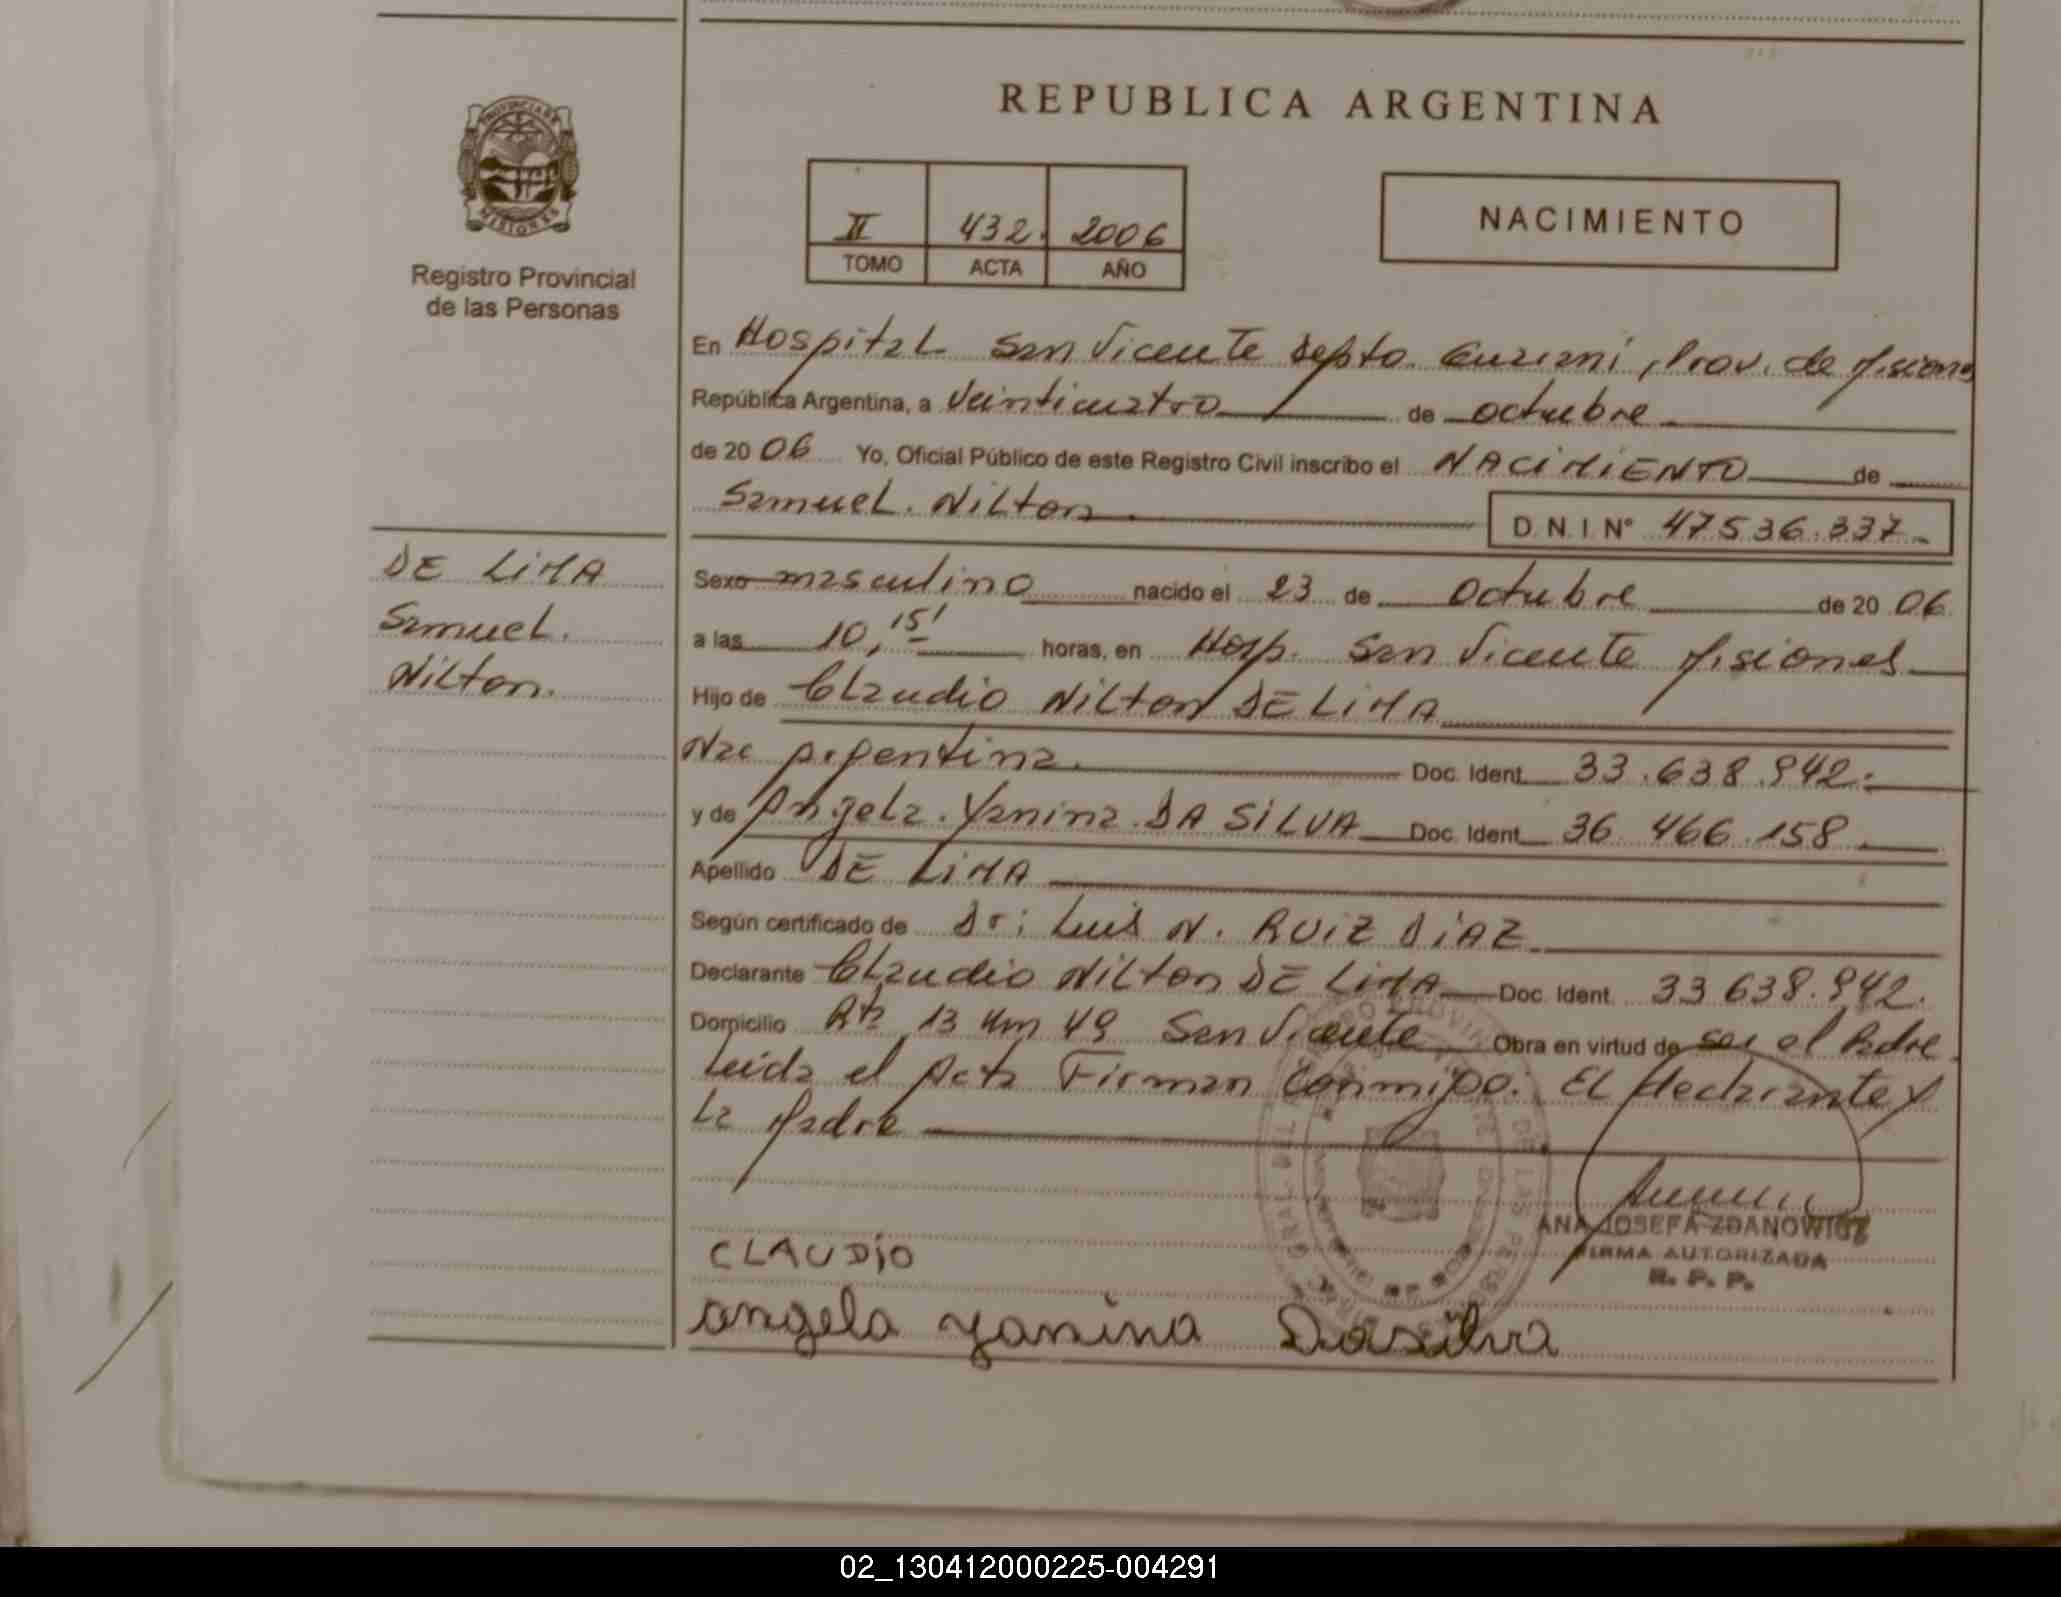 REPUBLICA ARGENTINA
PROVINCIA DE
MISIONES
Registro Provincial
de las Personas
II 432. 2006
TOMO ACTA AÑO
NACIMIENTO
En Hospital San Vicente Depto. Guarani, Prov. de Misiones
República Argentina, a Veinticuatro de octubre
de 2006 Yo, Oficial Público de este Registro Civil inscribo el NACIMIENTO de
Samuel. Nilton
D.N.I. N° 47536.337.-
DE LIMA
Samuel.
Nilton.
Sexo masculino nacido el 23 de Octubre de 2006
a las 10,15' horas, en Hosp. San Vicente Misiones
Hijo de Claudio Nilton DE LIMA
Nac Argentina. Doc. Ident. 33.638.942.-
y de Angela. Yanina. DA SILVA Doc. Ident. 36 466.158
Apellido DE LIMA
Según certificado de Dr; Luis N. RUIZ DIAZ
Declarante Claudio Nilton DE LIMA Doc. Ident. 33 638.942.
Domicilio Rta 13 Km 49 San Vicente Obra en virtud de ser el Padre.
Leida el Acta Firman Conmigo. El declarante y
La Madre
ANA JOSEFA ZDANOWICZ
FIRMA AUTORIZADA
R. P. P.
CLAUDiO
angela yanina Dasilva
02_130412000225-004291